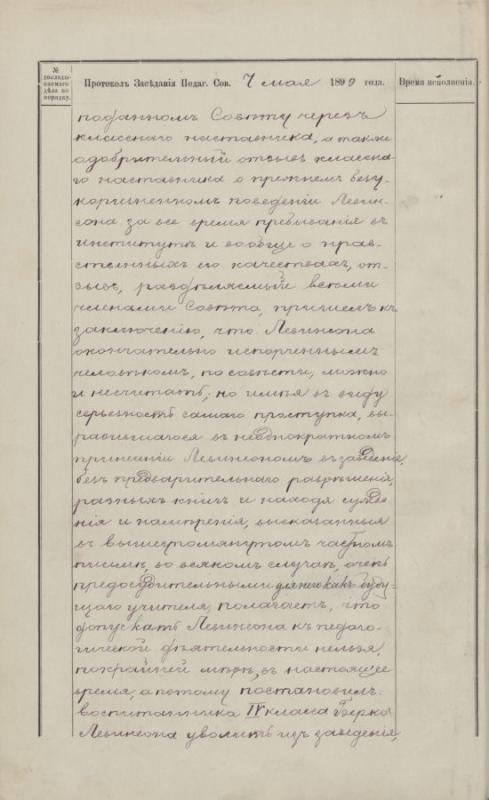 №
докладываемаго
дѣла по
порядку.
Протоколъ Засѣданія Педаг. Сов. 7 мая 1899 года.
Время исполненія.
поданномъ Совѣту черезъ
класснаго наставника, а также
одобрительный отзывъ классна-
го наставника о прежнемъ безу-
коризненномъ поведеніи Левин-
сона за все время пребыванія въ
институтѣ и вообще о нрав-
ственныхъ его качествахъ, от-
зывъ, раздѣляемый всѣми
членами Совѣта, пришелъ къ
заключенію, что Левинсона
окончательно испорченнымъ
человѣкомъ, по совѣсти, можно
и не считать; но имѣя въ виду
серьезность самаго проступка, вы-
разившагося въ неоднократномъ
принесеніи Левинсономъ въ заведеніе,
безъ предварительнаго разрѣшенія,
разныхъ книгъ и находя сужде-
нія и намѣренія, высказанныя
въ вышеупомянутомъ частномъ
письмѣ, во всякомъ случаѣ, очень
предосудительными для него какъ буду-
щаго учителя, полагаетъ, что
допускать Левинсона къ педаго-
гической дѣятельности нельзя,
по крайней мѣрѣ, въ настоящее
время, а потому постановилъ:
воспитанника IV класса Берка
Левинсона уволить изъ заведенія,